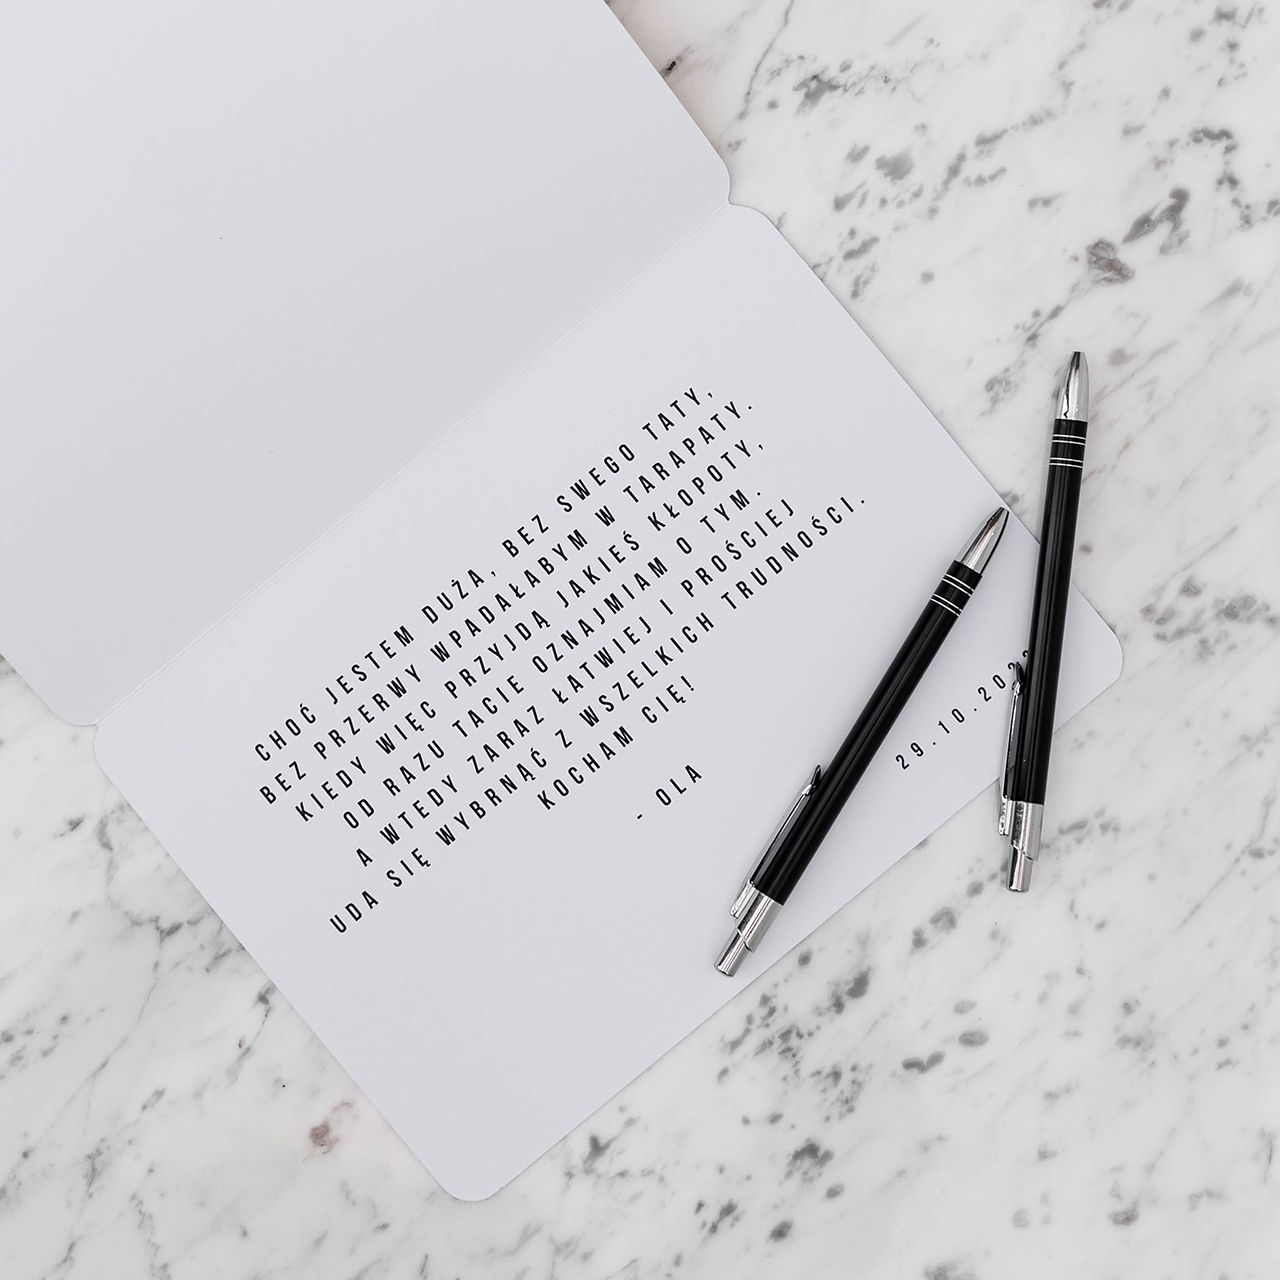 CHOĆ JESTEM DUŻA, BEZ SWEGO TATY,
BEZ PRZERWY WPADAŁABYM W TARAPATY.
KIEDY WIĘC PRZYJDĄ JAKIEŚ KŁOPOTY,
OD RAZU TACIE OZNAJMIAM O TYM.
A WTEDY ZARAZ ŁATWIEJ I PROŚCIEJ
UDA SIĘ WYBRNĄĆ Z WSZELKICH TRUDNOŚCI.
KOCHAM CIĘ!
- OLA